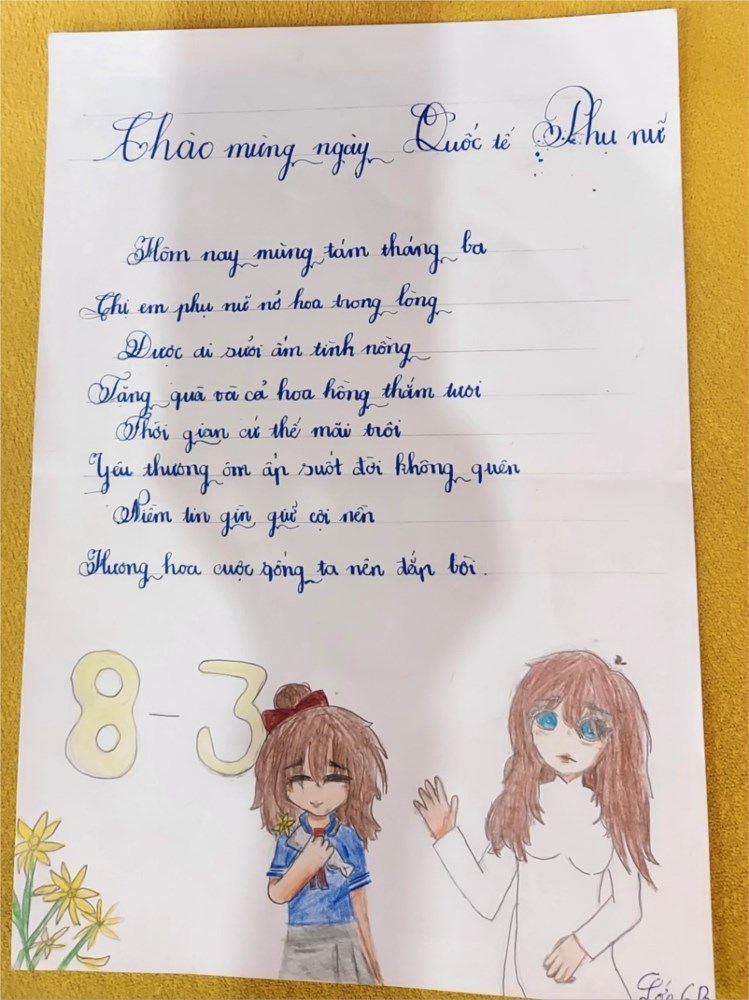 Chào mừng ngày Quốc tế Phụ nữ
Hôm nay mùng tám tháng ba
Chị em phụ nữ nở hoa trong lòng
Được ai sưởi ấm tình nồng
Tặng quà và cả hoa hồng thắm tươi
Thời gian cứ thế mãi trôi
Yêu thương ôm ấp suốt đời không quên
Niềm tin gìn giữ cội nền
Hương hoa cuộc sống ta nên đắp bồi.
8-3
Lớp 6B